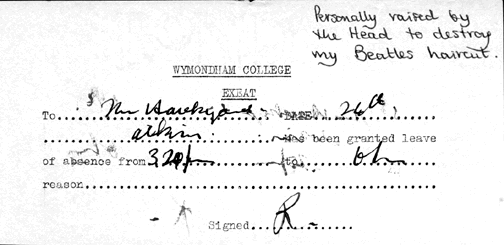 Personally raised by
the Head to destroy
my Beatles haircut.
WYMONDHAM COLLEGE
EXEAT
To Mr Hawkyard DATE 26th
has been granted leave
of absence from 3.20pm to 6pm
reason
Signed R